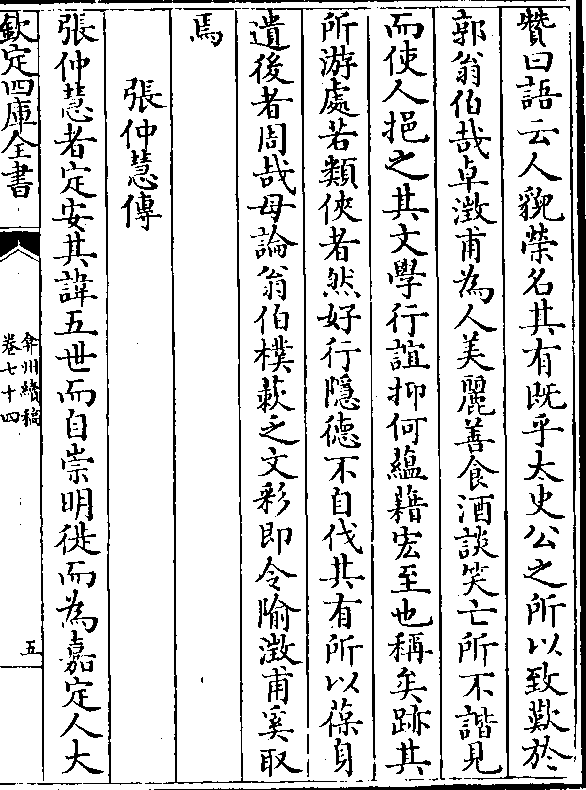 贊曰語云人貌榮名其有既乎太史公之所以致歎於
郭翁伯哉卓澂甫為人美麗善食酒談笑亡所不諧見
而使人挹之其文學行誼抑何蘊藉宏至也稱矣跡其
所游處若類俠者然好行隱德不自伐其有所以葆身
遺後者周哉毋論翁伯樸蔌之文彩即令隃澂甫奚取
焉
張仲慧傳
張仲慧者定安其諱五世而自崇明徙而為嘉定人大
欽定四庫全書
弇州續稿
卷七十四
五